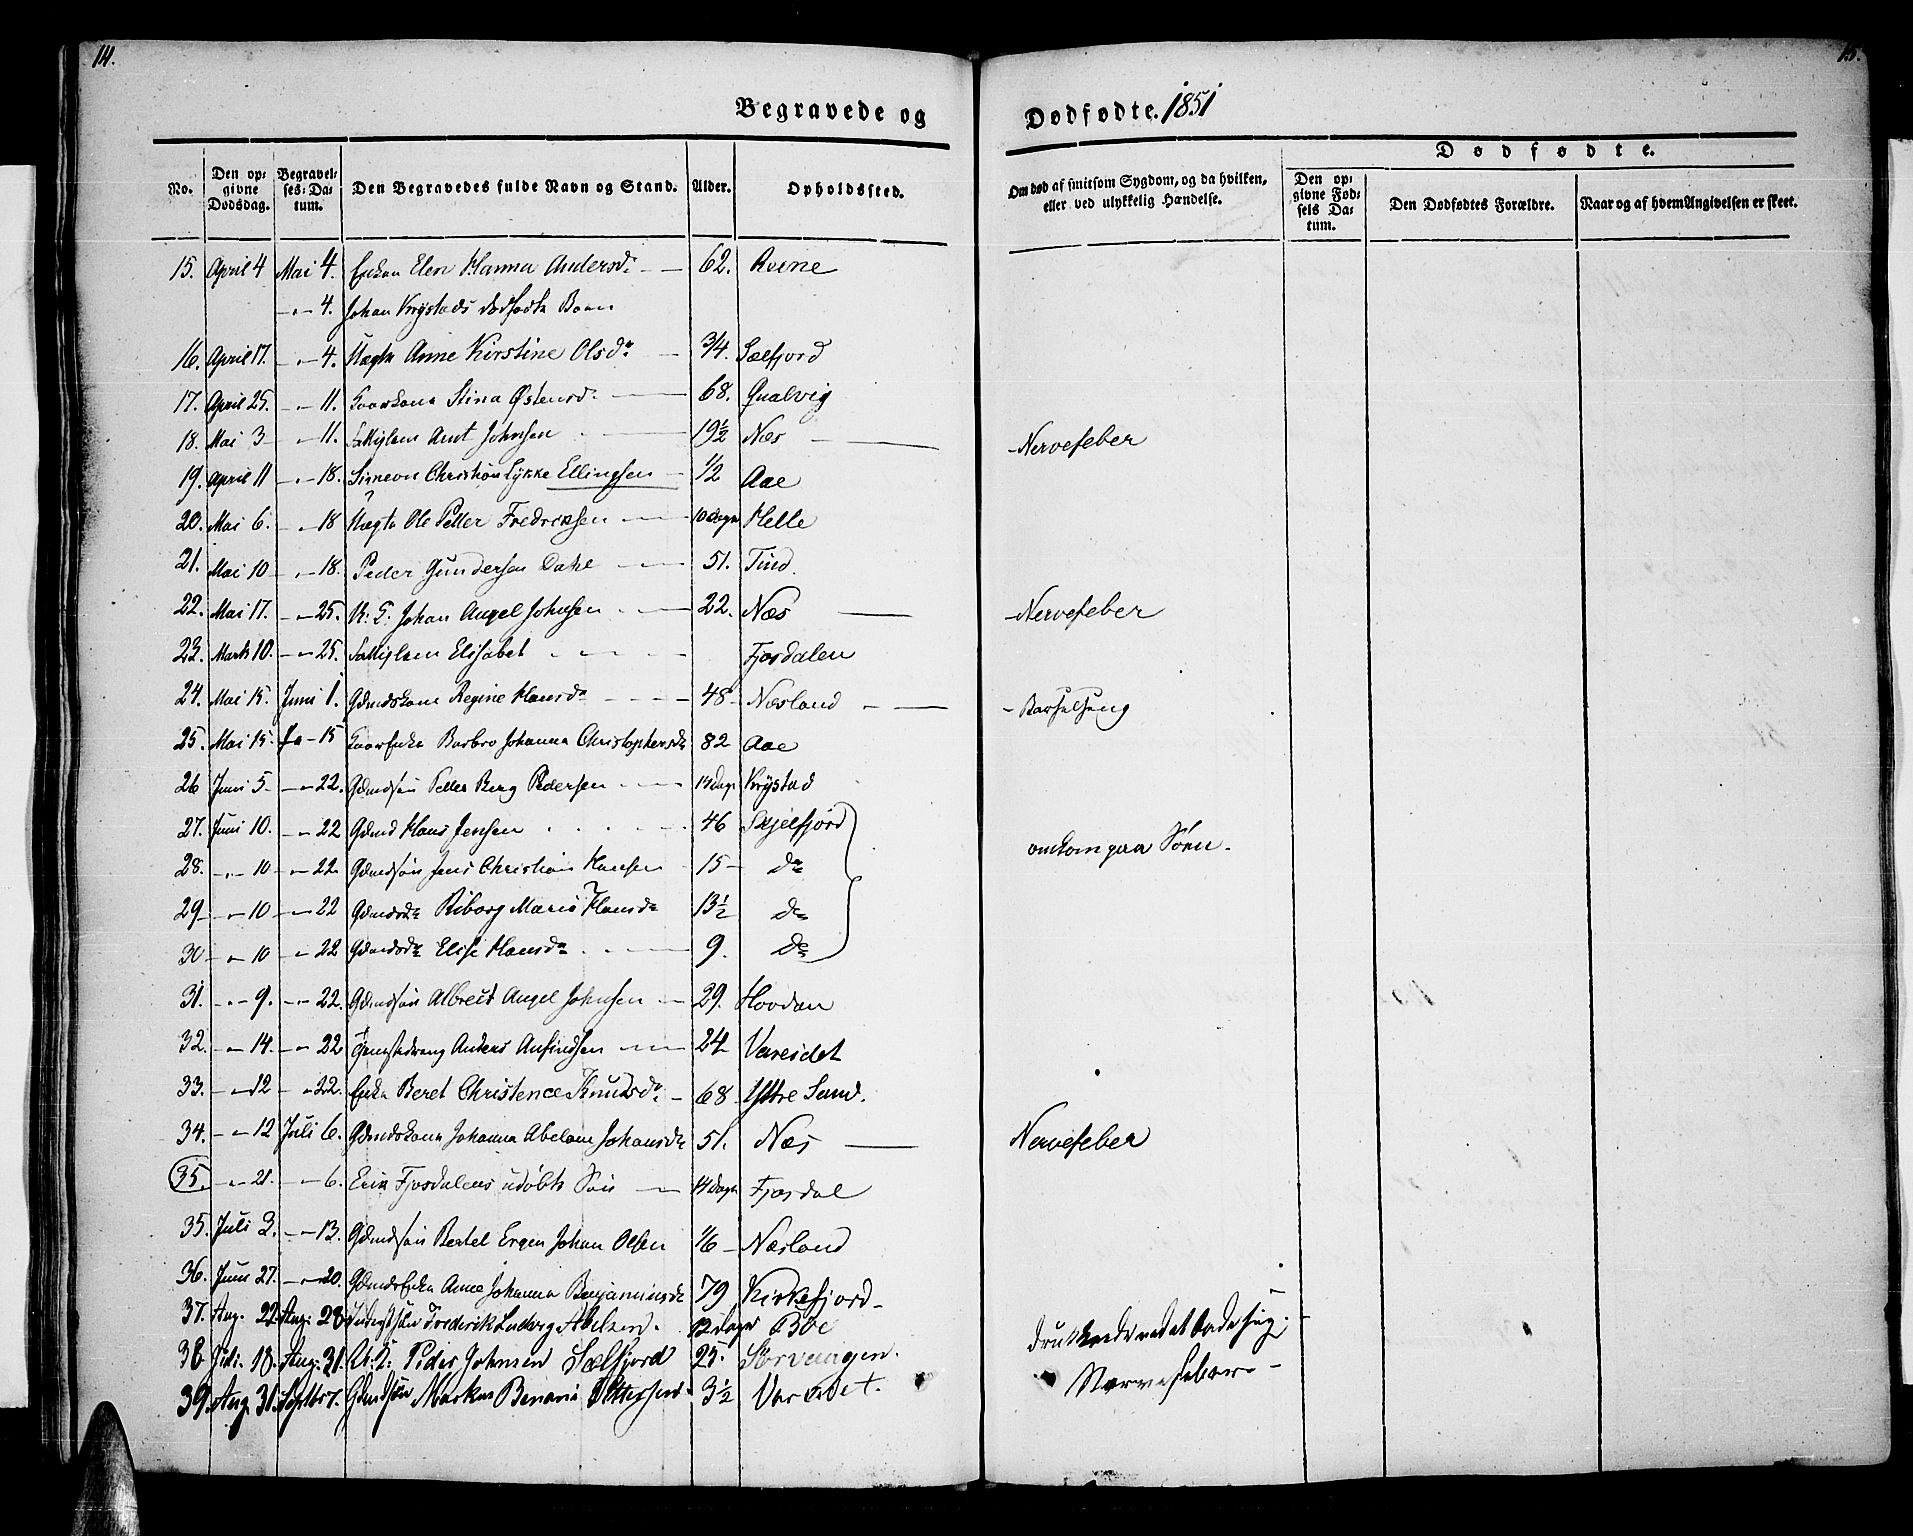 14.
15.
Begravede og Dødfødte. 1851
Dødfødte.
No. Den opgivne Dødsdag. Begravelses-Datum. Den Begravedes fulde Navn og Stand. Alder. Opholdssted. Om død af smitsom Sygdom, og da hvilken, eller ved ulykkelig Hændelse. Den opgivne Fødsels Datum. Den Dødfødtes Forældre. Naar og af hvem Angivelsen er skeet.
15. April 4 Mai 4. Enken Elen Hanna Andersd. 62. Reine
-"- 4. Johan Krystads dødfødte Barn
16. April 17. -"- 4. Uægte Anne Kirstine Olsdr 3/4 Sælfjord
17. April 25. -"- 11. Gaarkone Stina Østensd. 68. Qualvig
18. Mai 3 -"- 11. Arnt Johnsen 19½ Næs - Nervefeber
19. April 11 -"- 18. Simeon Christian Lykke Ellingsen 1/2 Aae
20. Mai 6. -"- 18 Uægte Ole Petter Fredriksen 10 dage Helle
21. Mai 10 -"- 18. Peder Gundersen Dahl 51. Tind
22. Mai 17. -"- 25. Johan Angel Johnsen 22. Næs - Nervefeber
23. Marts 10. -"- 25. Elisabet Fjordalen
24. Mai 15. Juni 1. Gdmdskone Regine Hansdr 48 Næsland - Barselseng
25. Mai 15. Ja - 15 Barbro Johanna Christophersdr 82 Aae
26 Juni 5 -"- 22. Gdmdsøn Petter Berg Pedersen 14 Dage Krystad
27. Juni 10. -"- 22 Gdmd Hans Jensen 46 Skjelfjord
28. -"- 10 -"- 22 Gdmdsøn Jens Christian Hansen 15 - do omkom paa Søen.
29 -"- 10 -"- 22 Gdmdsdr Riborg Maria Hansdr 13½ do
30 -"- 10 -"- 22 Gdmdsdr Elise Hansdr 9. do
31. -"- 9. -"- 22. Gdmdsøn Albreit Angel Johnsen 29. Hovdan
32. -"- 14. -"- 22 Anders Anfindsen 24 Vareidet
33. -"- 12 -"- 22. Enke Beret Christence Knudsdr 68 Yttre Sund.
34. -"- 12 Juli 6. Gdmdskone Johanna Abelone Johansdr 51. Næs - Nervefeber
35. -"- 21. -"- 6. Erik Fjordalens udøbte Søn 14 dage Fjordal
35. Juli 3. -"- 13. Gdmdsøn Bertel Johan Olsen 1/6 Næsland
36. Juni 27. -"- 20. Gdmdsenke Anne Johanna Benjaminsdr 79 Kirkefjord
37. Aug. 22. Aug. 28 Frederik Ludvig Abelsen. 12 dage Bøe
38 Juli. 13. Aug. 31. Peder Johnsen Sælfjord 25. Sørvaagen. Nervefeber
39. Aug. 31. Septbr 7. Gdmdsøn Markus Benoni Pettersen 3½ Vareidet.